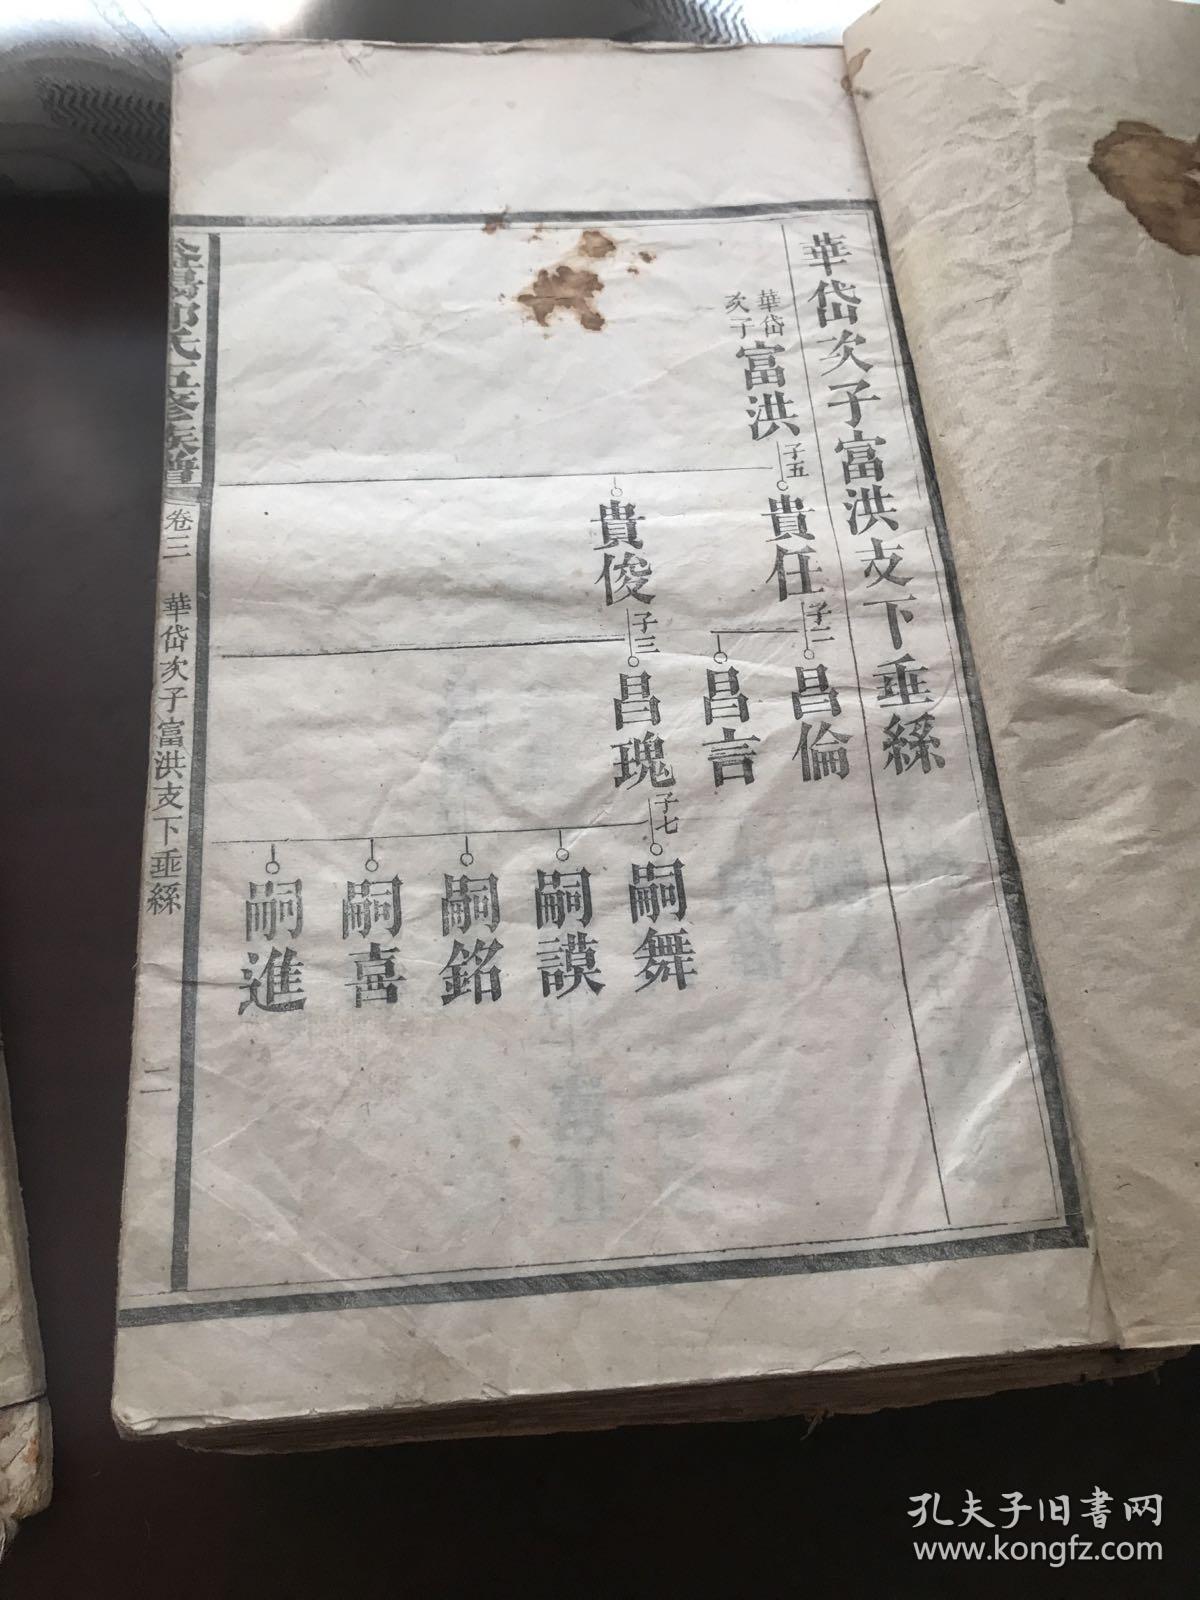 華岱次子富洪支下垂絲
華岱
次子
富洪
子五
貴任
子二
昌倫
昌言
貴俊
子三
昌瑰
子七
嗣舞
嗣謨
嗣銘
嗣喜
嗣進
氏五修族譜
卷三
華岱次子富洪支下垂絲
二
孔夫子旧书网
www.kongfz.com